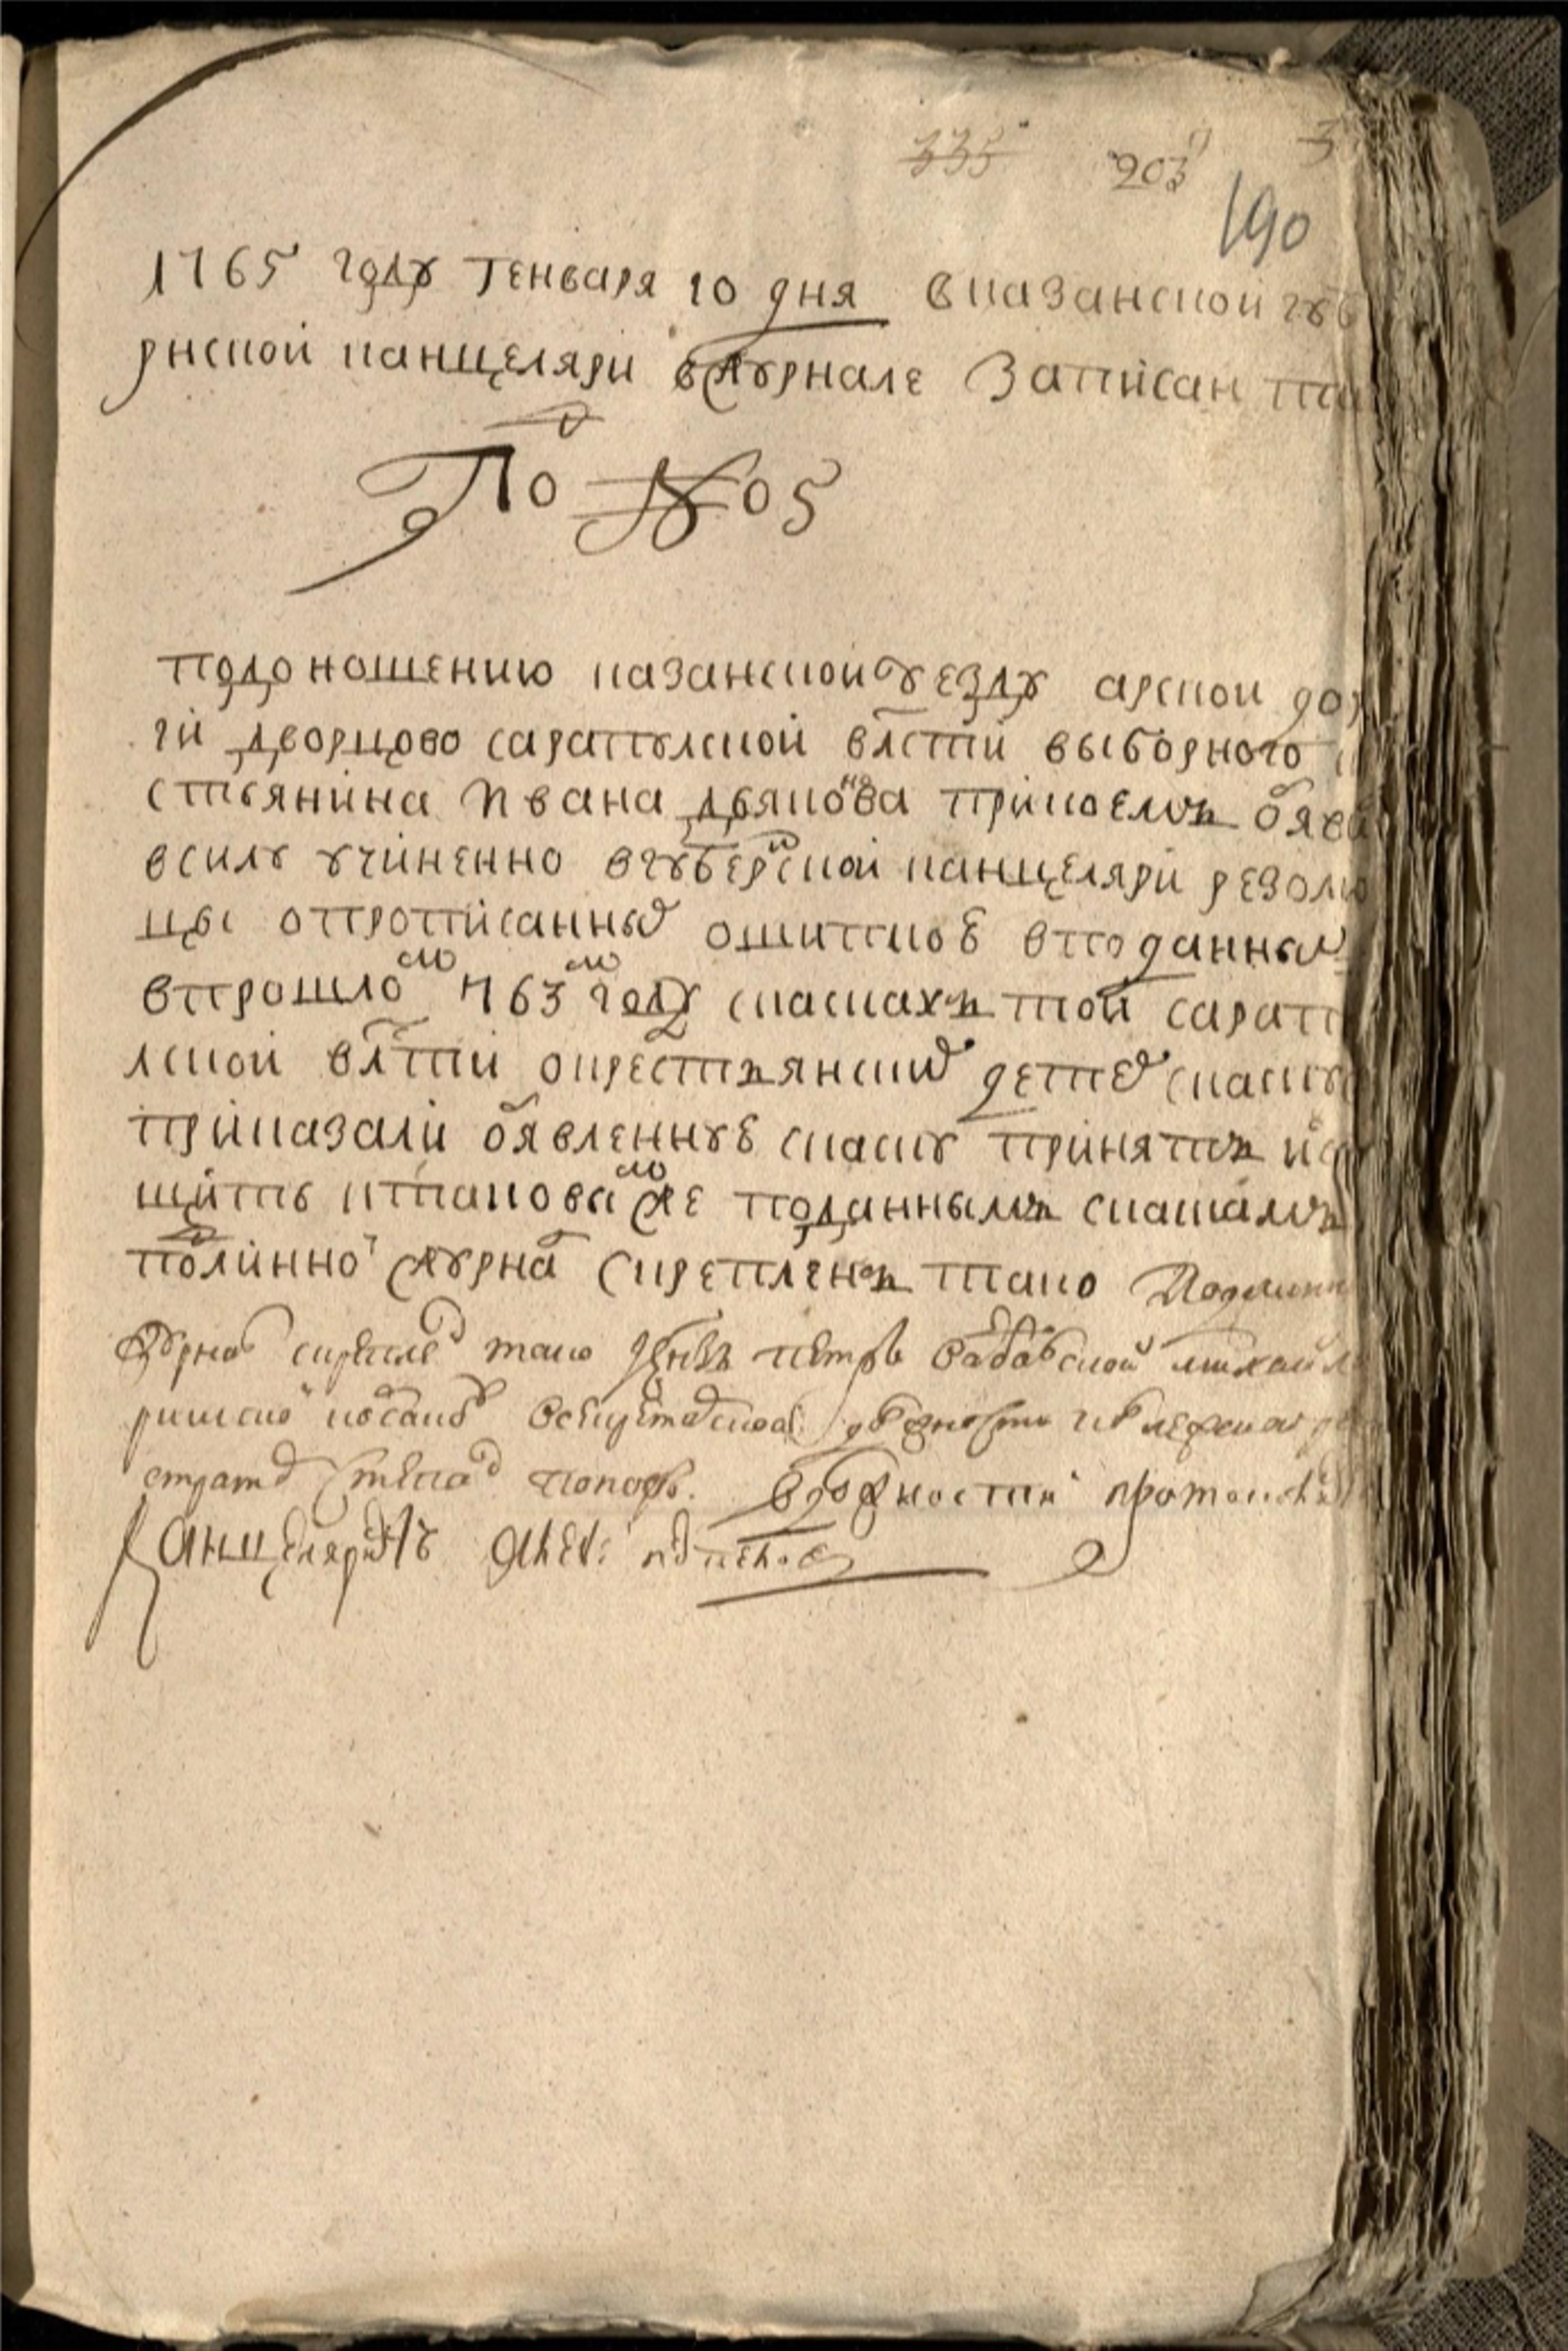 335 203 3
190
1765 году генваря 10 дня в казанской губ
рнской канцеляри вжурнале записан та
По№ 05
подоношению казанской уезду арской до
ги дворцово сарапулской влсти выборного
стьянина Ивана дьяконова прикоемъ обяв
всилу учиненно вгубернской канцеляри резолю
цы опрописанных ошипков вподанных
впрошлом 763м году скасках той сарап
лской влсти окрестьянских детех скаску
приказали обявленную скаску принять и
щить ктаковым же поданнымъ скаскамъ
подлинной журнал скрепленъ тако Подлинн
журнал скрепил тако князь петръ
стратор степан попов. вдолжности протокол
Канцелярист